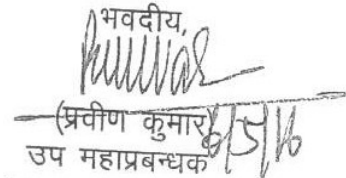 भवदीय,
(प्रवीण कुमार)
उप महाप्रबन्धक